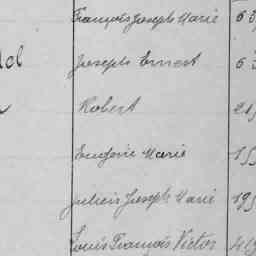 François Joseph Marie 63
del Joseph Ernest 63
Robert 21
Eugène Marie 155
Julien Joseph Marie 195
Louis François Victor 419